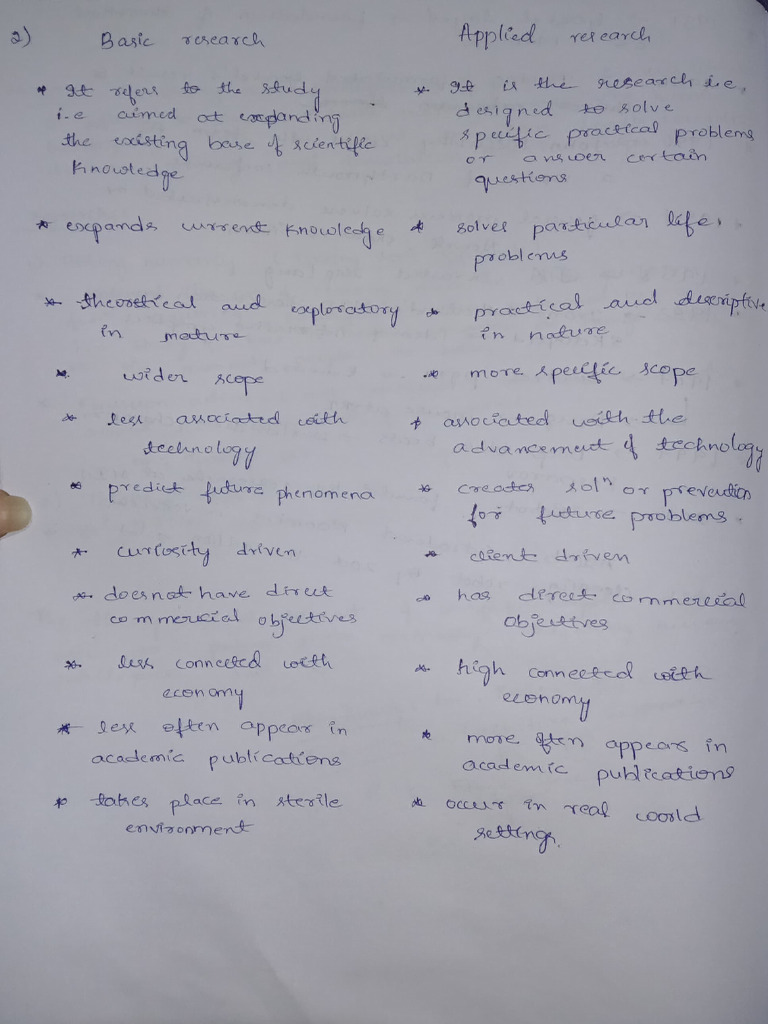 2) Basic research
Applied research
* It refers to the study
i.e aimed at expanding
the existing base of scientific
Knowledge
* It is the research i.e,
designed to solve
specific practical problems
or answer certain
questions
* expands current knowledge
* solves particular life,
problems
* theoretical and exploratory
in nature
* practical and descriptive
in nature
* wider scope
* more specific scope
* less associated with
technology
* associated with the
advancement of technology
* predict future phenomena
* creates solⁿ or prevention
for future problems.
* curiosity driven
* client driven
* doesnot have direct
commercial objectives
* has direct commercial
objectives
* less connected with
economy
* high connected with
economy
* less often appear in
academic publications
* more often appears in
academic publications
* takes place in sterile
environment
* occur in real world
settings.